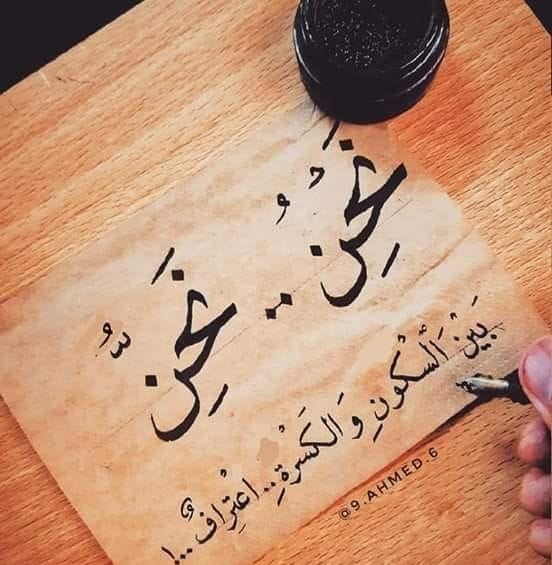 نَحْنُ .. نَحِنُّ
بَيْنَ اَلْسُكُونِ وَ الكَسْرَةِ .. اعْتِرَافٌ ...!
@9.AHMED.6